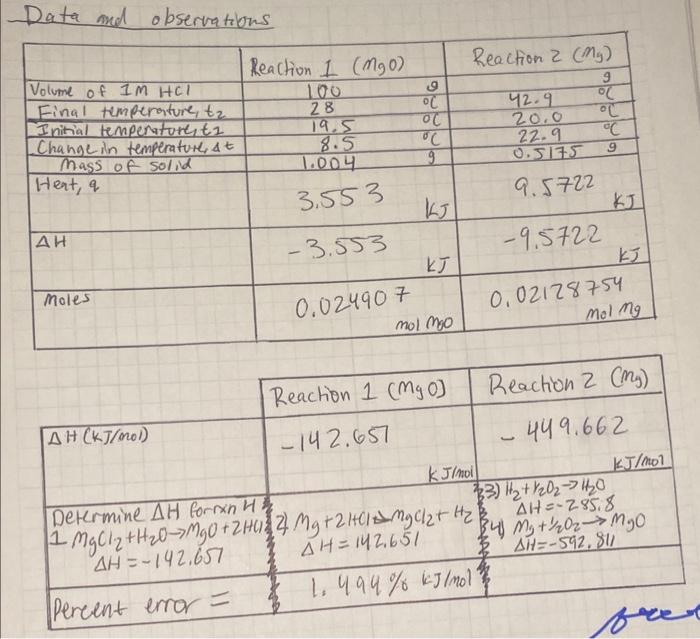 Data and observations
Reaction 1 (MgO) Reaction 2 (Mg)
Volume of 1M HCl 100 g g
Final temperature, t2 28 °C 42.9 °C
Initial temperature, t1 19.5 °C 20.0 °C
Change in temperature, Δt 8.5 °C 22.9 °C
Mass of solid 1.004 g 0.5175 g
Heat, q 3.553 kJ 9.5722 kJ
ΔH -3.553 kJ -9.5722 kJ
Moles 0.024907 mol MgO 0.02128754 mol Mg
Reaction 1 (MgO) Reaction 2 (Mg)
ΔH (kJ/mol) -142.651 kJ/mol -449.662 kJ/mol
Determine ΔH for rxn 4
1. MgCl2+H2O→MgO+2HCl
ΔH=-142.651
2) Mg+2HCl→MgCl2+H2
ΔH=142.651
3) H2+1/2O2→H2O
ΔH=-285.8
4) Mg+1/2O2→MgO
ΔH=-592.811
Percent error = 1.494% kJ/mol